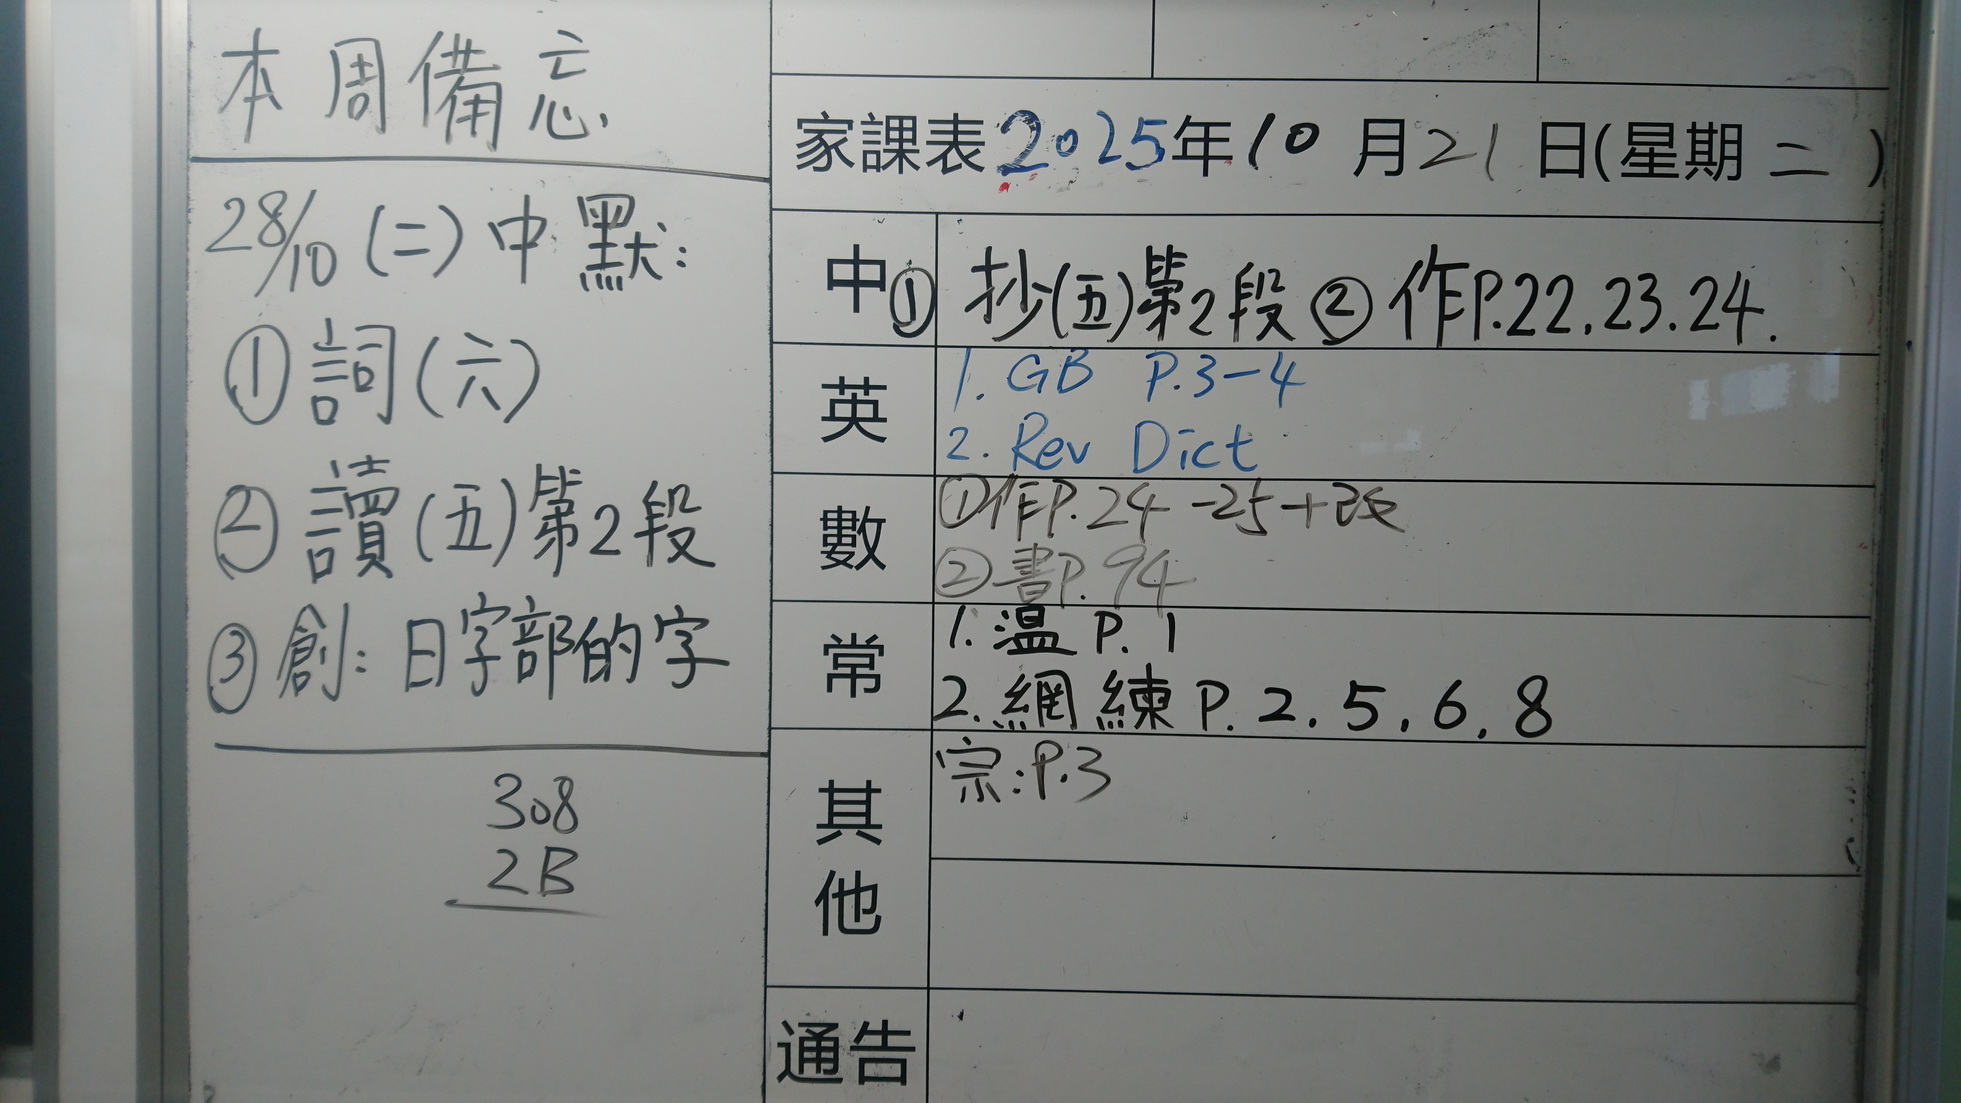 本周備忘
28/10 (二) 中默:
① 詞(六)
② 讀(五)第2段
③ 創: 日字部的字
308
2B
家課表2025年10月21日(星期二)
中 ① 抄(五)第2段 ② 作P.22.23.24.
英
1. GB P.3-4
2. Rev Dict
數
①作P.24-25+改
②書P.94
常
1. 溫 P. 1
2. 網練 P. 2. 5. 6. 8
其他
宗:P.3
通告